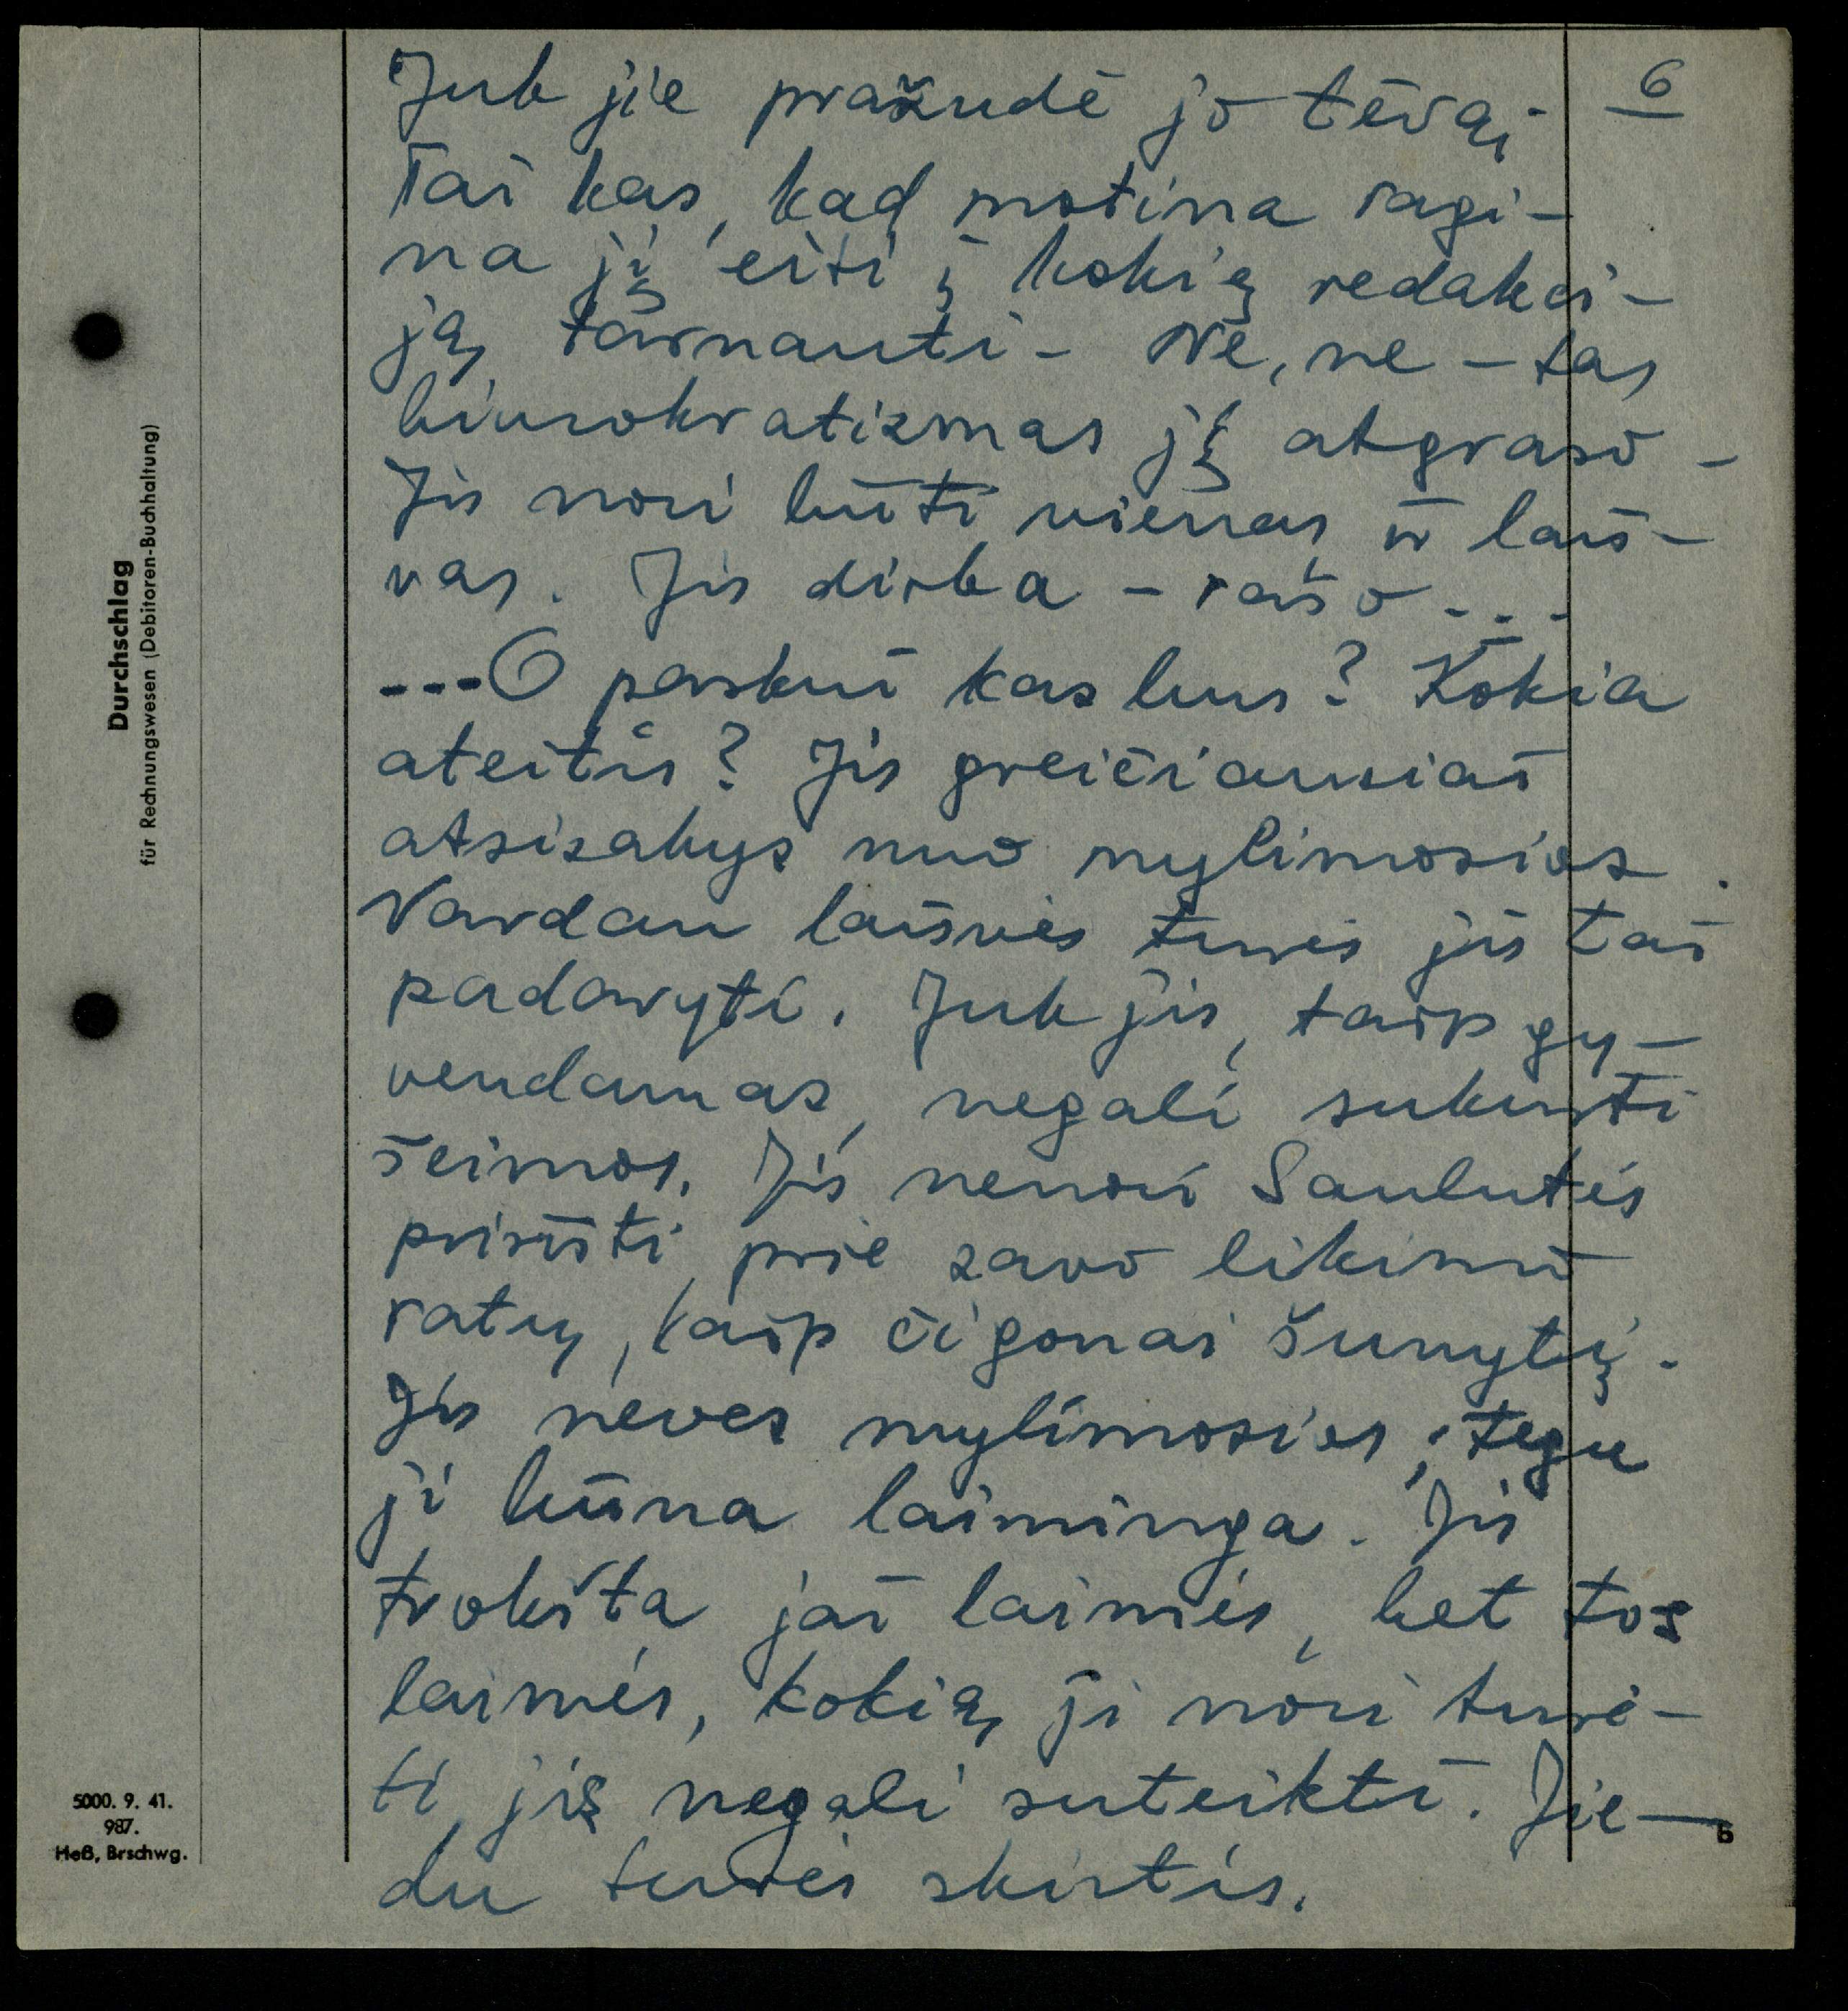 6
Juk jie pražudė jo tėvą.
Tai kas, kad motina ragi-
na jį eiti į kokią redakci-
ją tarnauti - Ne, ne - tas
biurokratizmas jį atgraso -
Jis nori būti vienas ir lais-
vas. Jis dirba - rašo ...
...O paskui kas bus? Kokia
ateitis? Jis greičiausiai
atsisakys nuo mylimosios.
Vardan laisvės turės jis tai
padaryti. Juk jis, taip gy-
vendamas, negali sukurti
šeimos. Jis nenori Saulutės
pririšti prie savo likimo
ratų, kaip čigonai šunytį.
Jis neves mylimosios, tegu
ji būna laiminga. Jis
trokšta jai laimės, bet tos
laimės, kokią ji nori turė-
ti, jis negali suteikti. Jie-
du turės skirtis.
Durchschlag
für Rechnungswesen (Debitoren-Buchhaltung)
5000. 9. 41.
987.
Heß, Brschwg.